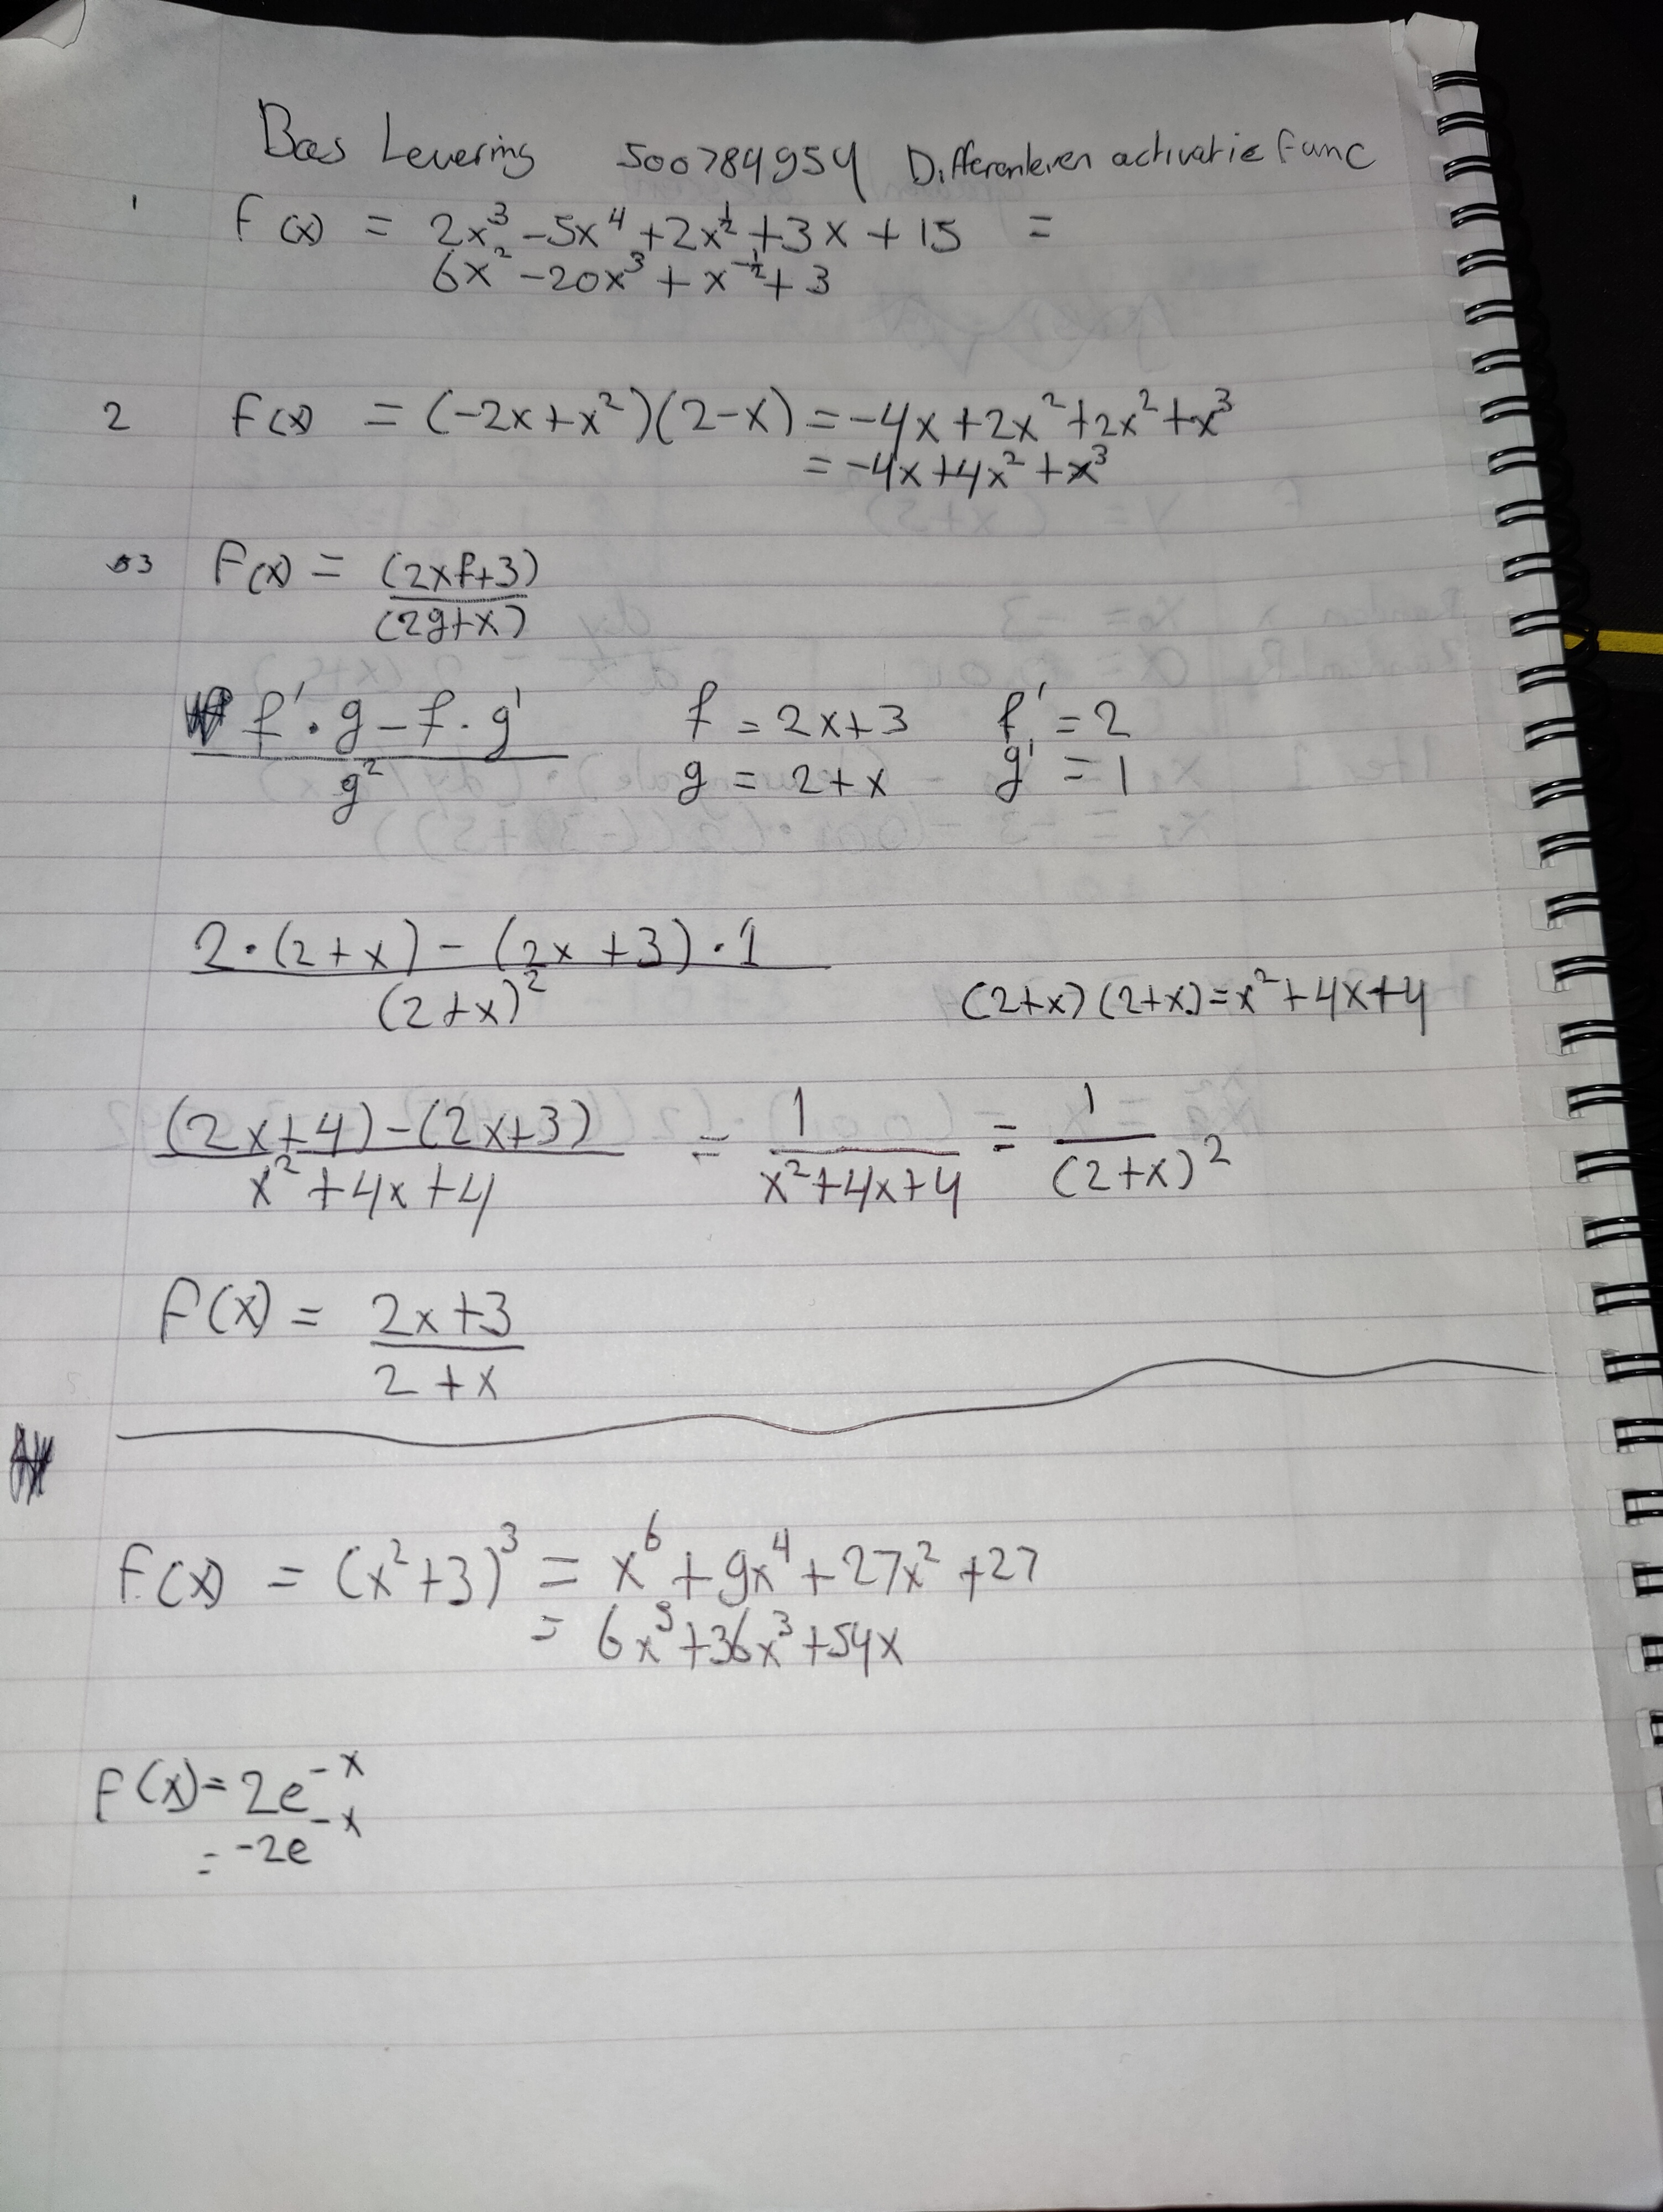 Bas Levering 500784954 Differentieren activatie func
1 F(x) = 2x³ - 5x⁴ + 2x^½ + 3x + 15 =
6x² - 20x³ + x^-½ + 3
2 F(x) = (-2x+x²)(2-x) = -4x + 2x² + 2x² + x³
= -4x + 4x² + x³
3 F(x) = (2x+3)
(2+x)
f' · g - f · g' f = 2x+3 f' = 2
g² g = 2+x g' = 1
2 · (2+x) - (2x+3) · 1
(2+x)² (2+x)(2+x) = x² + 4x + 4
(2x+4) - (2x+3) = 1 = 1
x² + 4x + 4 x² + 4x + 4 (2+x)²
F(x) = 2x+3
2+x
F(x) = (x²+3)³ = x⁶ + 9x⁴ + 27x² + 27
= 6x⁵ + 36x³ + 54x
F(x) = 2e^-x
= -2e^-x